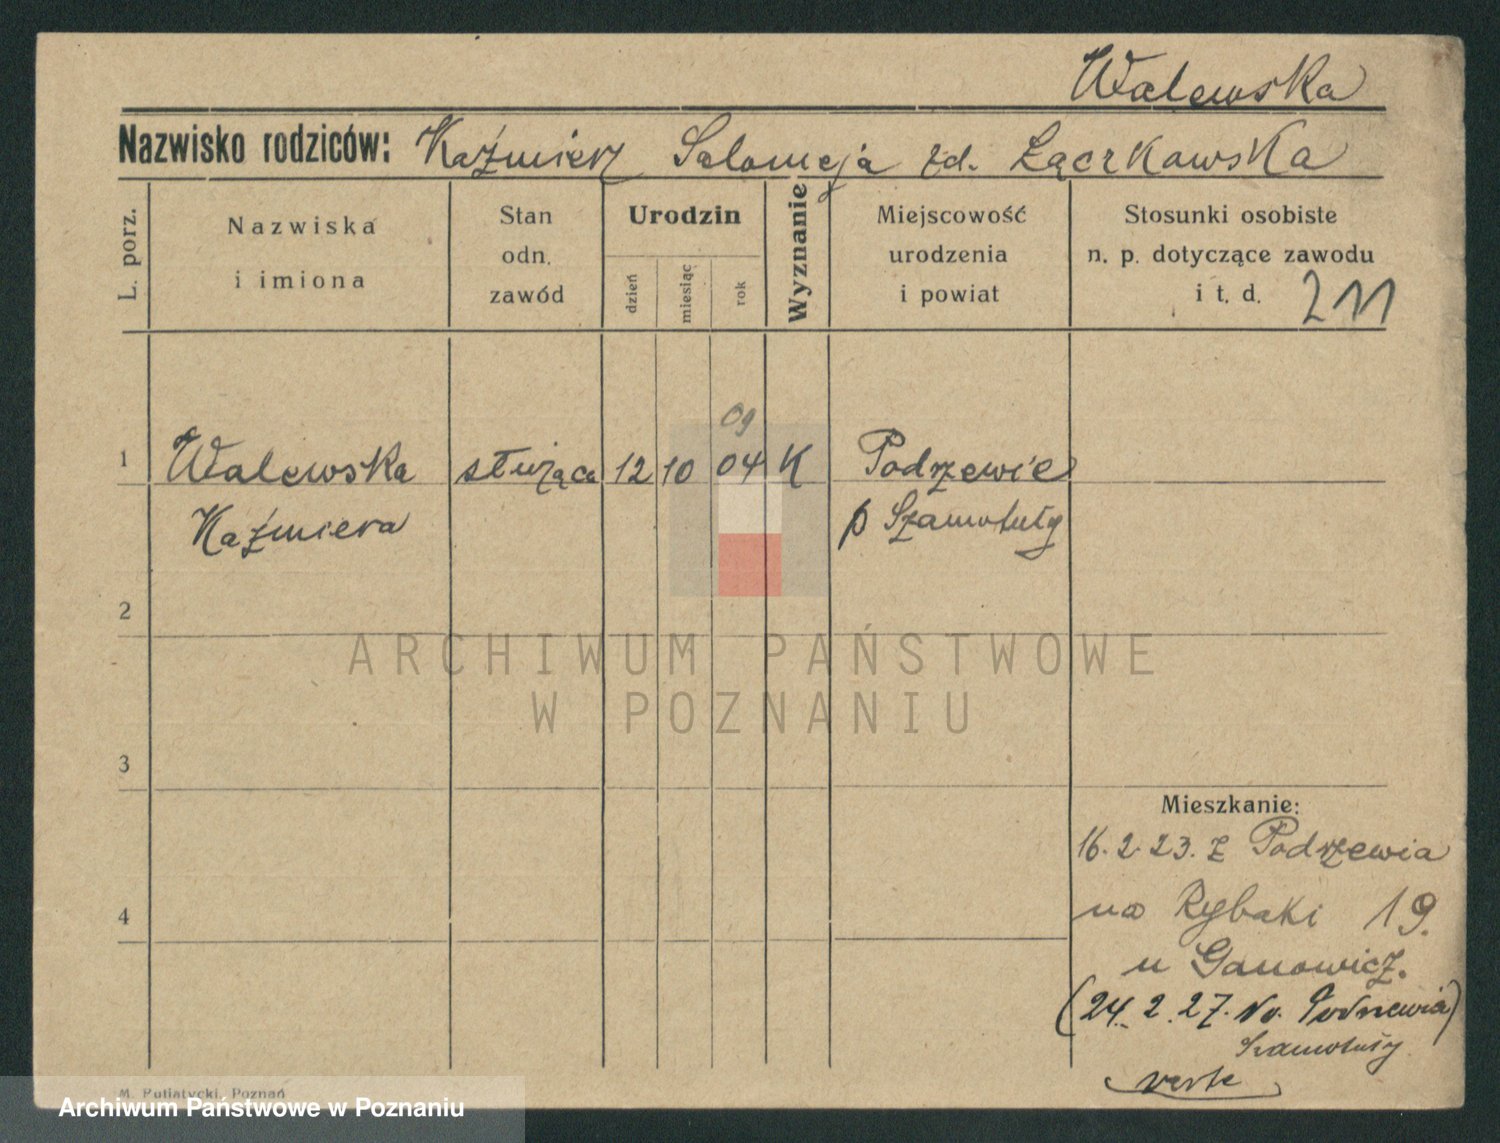 Walewska
Nazwisko rodziców: Kaźmierz Salomeja zd. Łączkowska
L. porz.
Nazwiska
i imiona
Stan
odn.
zawód
Urodzin
dzień
miesiąc
rok
Wyznanie
Miejscowość
urodzenia
i powiat
Stosunki osobiste
n. p. dotyczące zawodu
i t. d. 211
09
1 Walewska służąca 12 10 04 K Podrzewie
Kaźmiera p Szamotuły
2
ARCHIWUM PAŃSTWOWE
W POZNANIU
3
Mieszkanie:
16.2.23. z Podrzewia
4
na Rybaki 19.
u Ganowicz.
(24.2.27. do Podrzewia)
Szamotuły
verte
M. Putiatycki, Poznań
Archiwum Państwowe w Poznaniu